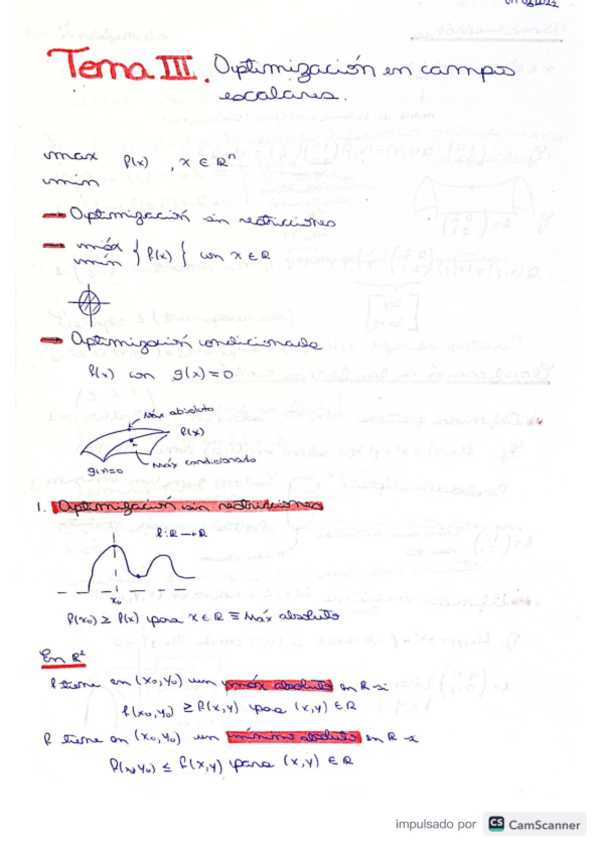 Tema III. Optimización en campos
escalares.
max
min
f(x) , x ∈ ℝⁿ
→ Optimización sin restricciones
→ máx
mín
{ f(x) } con x ∈ R
→ Optimización condicionada
f(x) con g(x)=0
Máx absoluto
f(x)
Máx condicionado
g(x)=0
1. Optimización sin restricciones
f: R → R
x₀
f(x₀) ≥ f(x) para x ∈ R ≡ Máx absoluto
En R²
f tiene en (x₀,y₀) un máx absoluto en R si
f(x₀,y₀) ≥ f(x,y) para (x,y) ∈ R
f tiene en (x₀,y₀) un mínimo absoluto en R si
f(x₀,y₀) ≤ f(x,y) para (x,y) ∈ R
impulsado por CS CamScanner